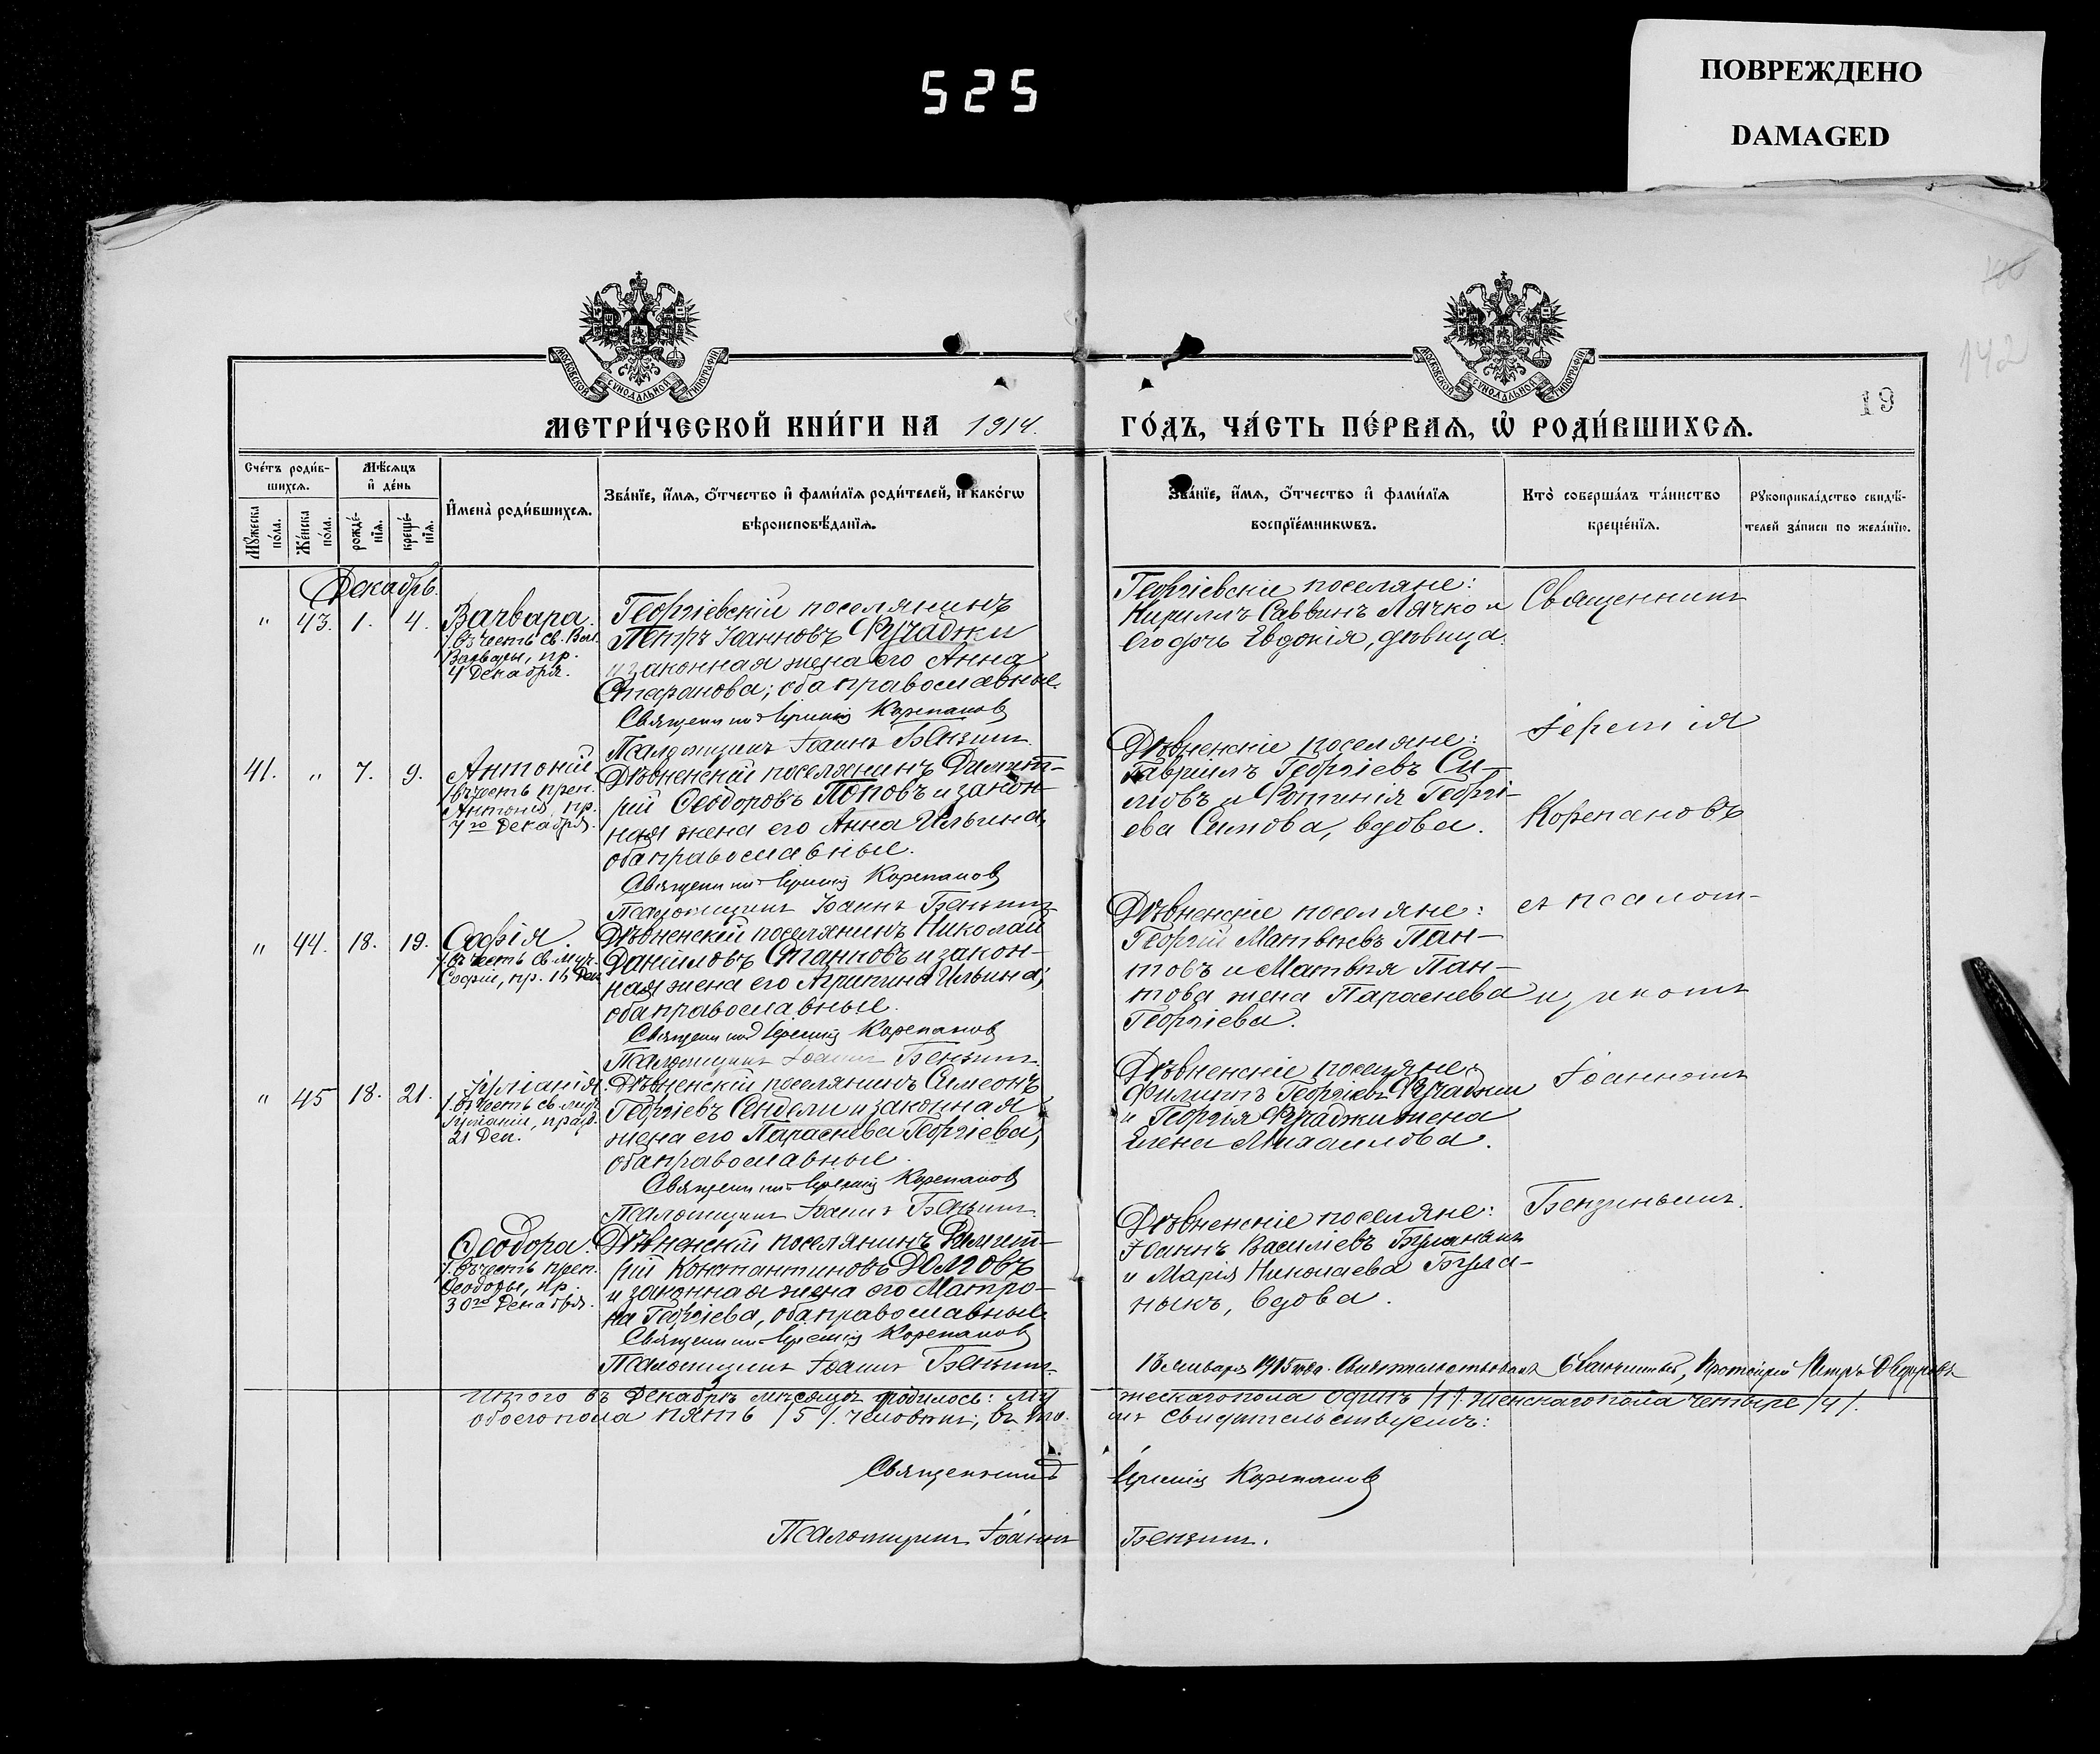 525
ПОВРЕЖДЕНО
DAMAGED
142
19
МОСКОВСКОЙ СѴНОДАЛЬНОЙ ТИПОГРАФІИ
МОСКОВСКОЙ СѴНОДАЛЬНОЙ ТИПОГРАФІИ
МЕТРИ́ЧЕСКОЙ КНИ́ГИ НА 1914. ГО́ДЪ, ЧА́СТЬ ПЕ́РВАѦ, Ѡ҆ РОДИ́ВШИХСѦ.
Сче́тъ роди́в-
шихсѧ.
Мѣ́сѧцъ
и҆ де́нь
Мꙋ́жеска
по́ла.
Же́нска
по́ла.
рожде́-
нїѧ.
креще́-
нїѧ.
И҆мена̀ роди́вшихсѧ.
Зва́нїе, и҆́мѧ, ѻ҆́тчество и҆ фами́лїѧ роди́телей, и҆ како́гѡ
вѣроисповѣ́данїѧ.
Зва́нїе, и҆́мѧ, ѻ҆́тчество и҆ фами́лїѧ
воспрїе́мникѡвъ.
Кто̀ соверша́лъ та́инство
креще́нїѧ.
Рꙋкоприкла́дство свидѣ́-
телей за́писи по жела́нїю.
Декабрь.
" 43. 1. 4.
Варвара.
/въ честь св. Вел.
Варвары, пр.
4 Декабря.
Георгіевскій поселянинъ
Петръ Іоанновъ Фучаджи
и законная жена его Анна
Старанова; оба православные.
Священникъ Іеремія Корепановъ
Псаломщикъ Іоаннъ Бензинъ.
Георгіевскіе поселяне:
Кириллъ Саввинъ Лячко и
его дочь Евдокія, дѣвица.
Священникъ
41. " 7. 9.
Антоній
/въ честь преп.
Антонія, пр.
7го Декабря.
Дѣвненскій поселянинъ Димит-
рій Ѳеодоровъ Поповъ и закон-
ная жена его Анна Ильина,
оба православные.
Священникъ Іеремія Корепановъ
Псаломщикъ Іоаннъ Бензинъ
Дѣвненскіе поселяне:
Гавріилъ Георгіевъ Си-
мовъ и Фотинія Георгі-
ева Симова, вдова.
Іеремія
Корепановъ
" 44. 18. 19.
Софія.
/въ честь св. муч.
Софіи, пр. 18 Дек.
Дѣвненскій поселянинъ Николай
Даниловъ Станковъ и закон-
ная жена его Агрипина Ильина,
оба православные.
Священникъ Іеремія Корепановъ
Псаломщикъ Іоаннъ Бензинъ.
Дѣвненскіе поселяне:
Георгій Матвѣевъ Пан-
товъ и Матвѣя Пан-
това жена Параскева
Георгіева.
съ псалом-
щикомъ
" 45 18. 21.
Іуліанія.
/въ честь св. муч.
Іуліаніи, празд.
21 Дек.
Дѣвненскій поселянинъ Симеонъ
Георгіевъ Сендели и законная
жена его Параскева Георгіева,
оба православные.
Священникъ Іеремія Корепановъ
Псаломщикъ Іоаннъ Бензинъ.
Дѣвненскіе поселяне:
Филиппъ Георгіевъ Фучаджи
и Георгія Фучаджи жена
Елена Михаилова.
Іоанномъ
Ѳеодора.
/въ честь преп.
Ѳеодоры, пр.
30го Декабря.
Дѣвненскій поселянинъ Димит-
рій Константиновъ Долговъ
и законная жена его Матро-
на Георгіева, оба православные.
Священникъ Іеремія Корепановъ
Псаломщикъ Іоаннъ Бензинъ.
Дѣвненскіе поселяне:
Іоаннъ Василіевъ Бужакъ
и Марія Николаева Бужа-
некъ, вдова.
Бензинымъ.
Января 1915 года. Протоіерей Петръ
Итого въ Декабрѣ мѣсяцѣ родилось: му-
жескаго пола одинъ /1/. женскаго пола четыре /4/.
обоего пола пять /5/. человѣкъ; въ чемъ свидѣтельствуемъ:
Священникъ Іеремія Корепановъ
Псаломщикъ Іоаннъ Бензинъ.